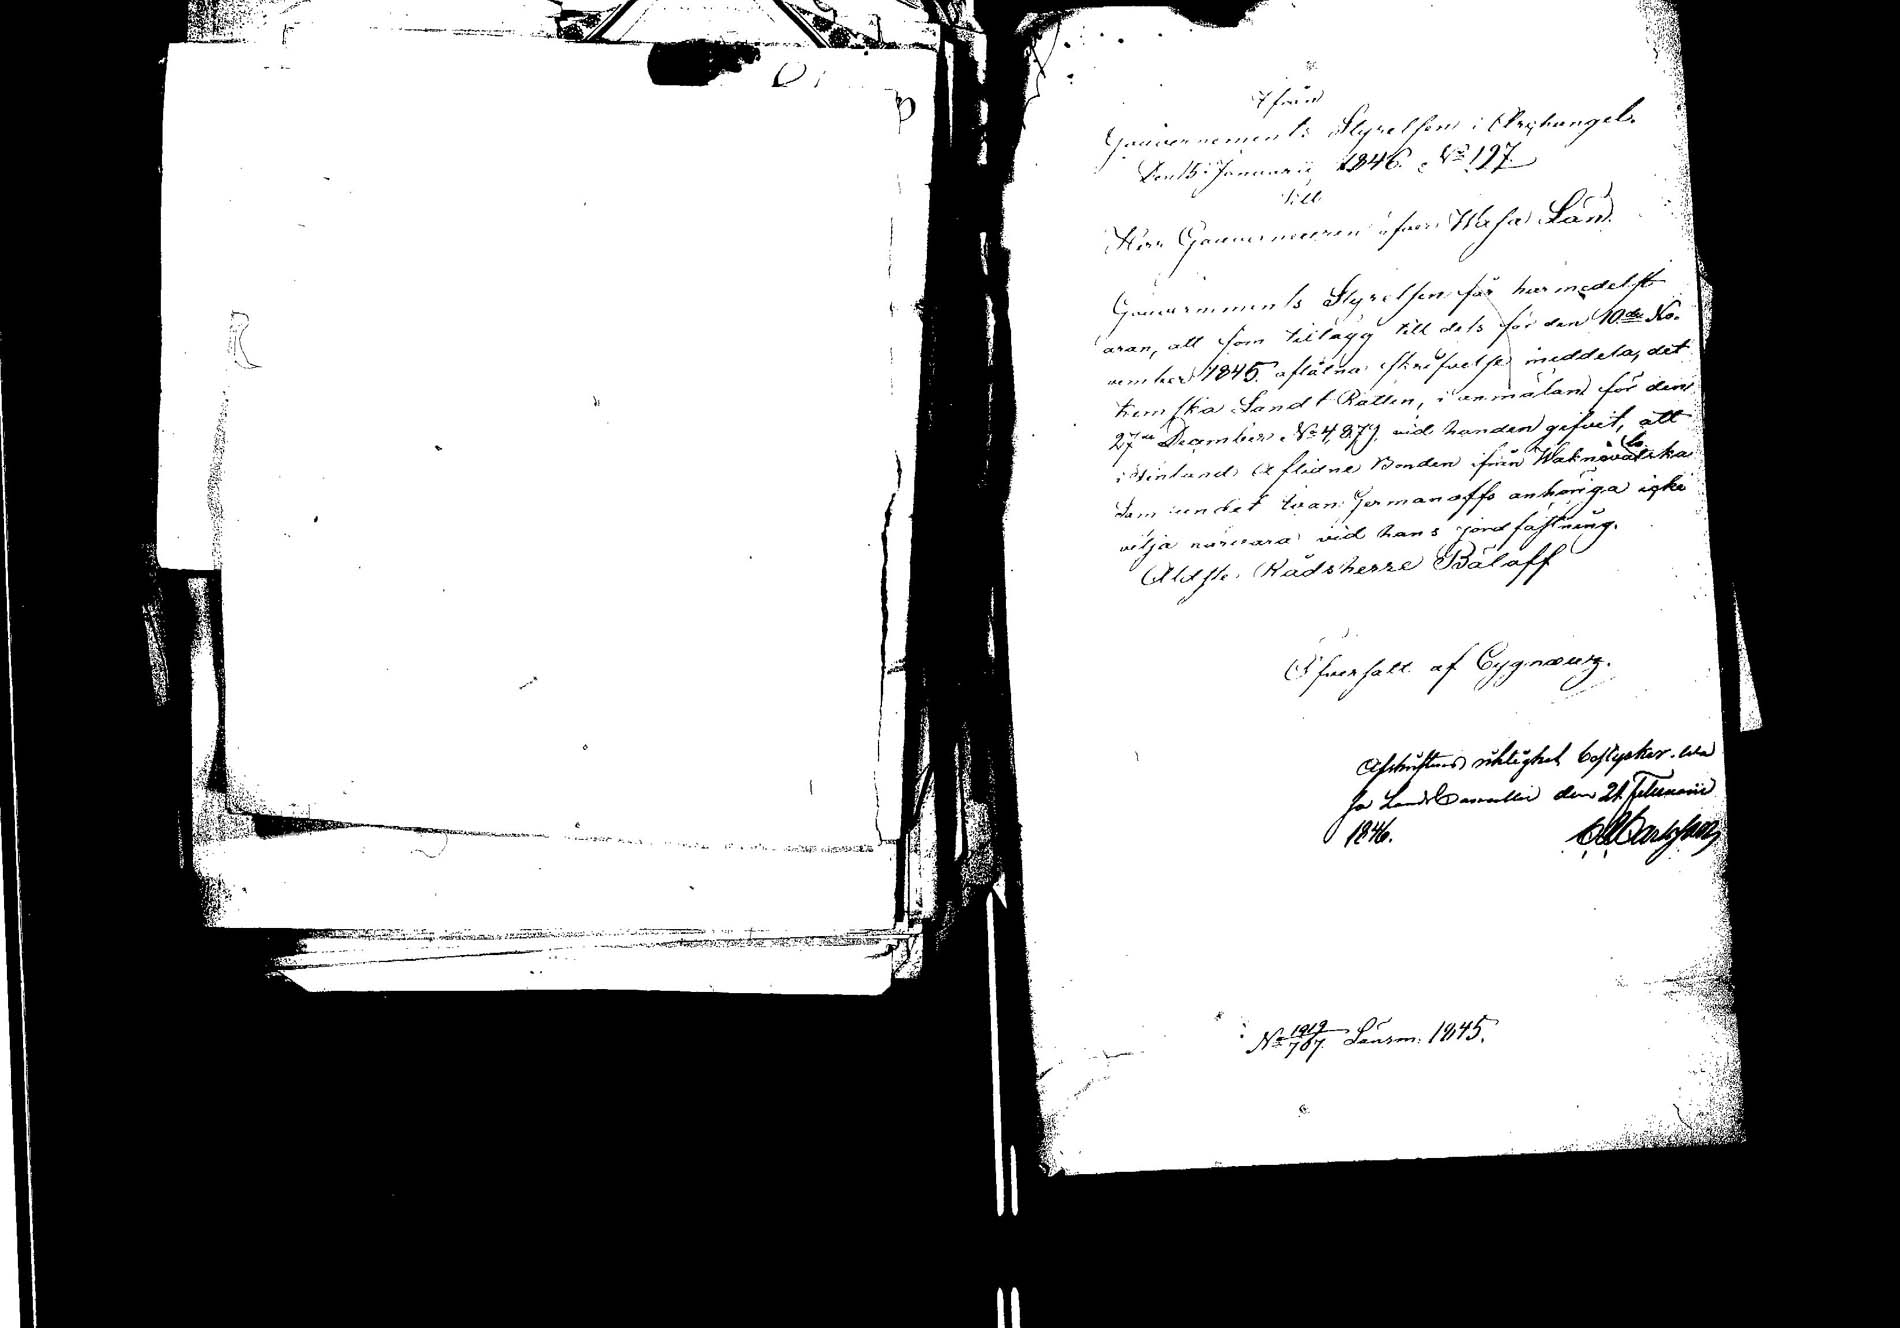 Ifrån
Gouvernements Styrelsen i Archangel.
Den 15 Januarii 1846. No 197.
till
Herr Gouverneuren öfver Wasa Län.
Gouvernements Styrelsen får härmedelst
äran, att som tillägg till dess för den 10de No-
vember 1845 aflåtna skrifvelse meddela, det
Kemska Landt Rätten, i anmälan för den
27de December No 4,879. vid handen gifvit, att
i Finland aflidne Bonden ifrån
Samfundet Ivan Jermanoffs anhöriga icke
vilja närvara vid hans jordfästning.
Äldste Rådsherre Bäloff
Öfversatt af Cygnæus.
Afskriftens riktighet bestyrker. Wa
sa Lands Cancellie den 21 Februarii
1846.
No 1919/707. Länsm. 1845.